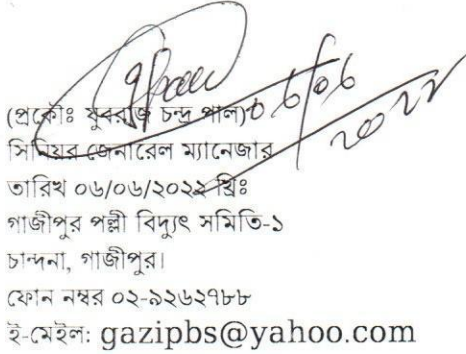 ০৬/০৬
২০২২
(প্রকৌঃ যুবরাজ চন্দ্র পাল)
সিনিয়র জেনারেল ম্যানেজার
তারিখ ০৬/০৬/২০২২ খ্রিঃ
গাজীপুর পল্লী বিদ্যুৎ সমিতি-১
চান্দনা, গাজীপুর।
ফোন নম্বর ০২-৯২৬২৭৮৮
ই-মেইল: gazipbs@yahoo.com